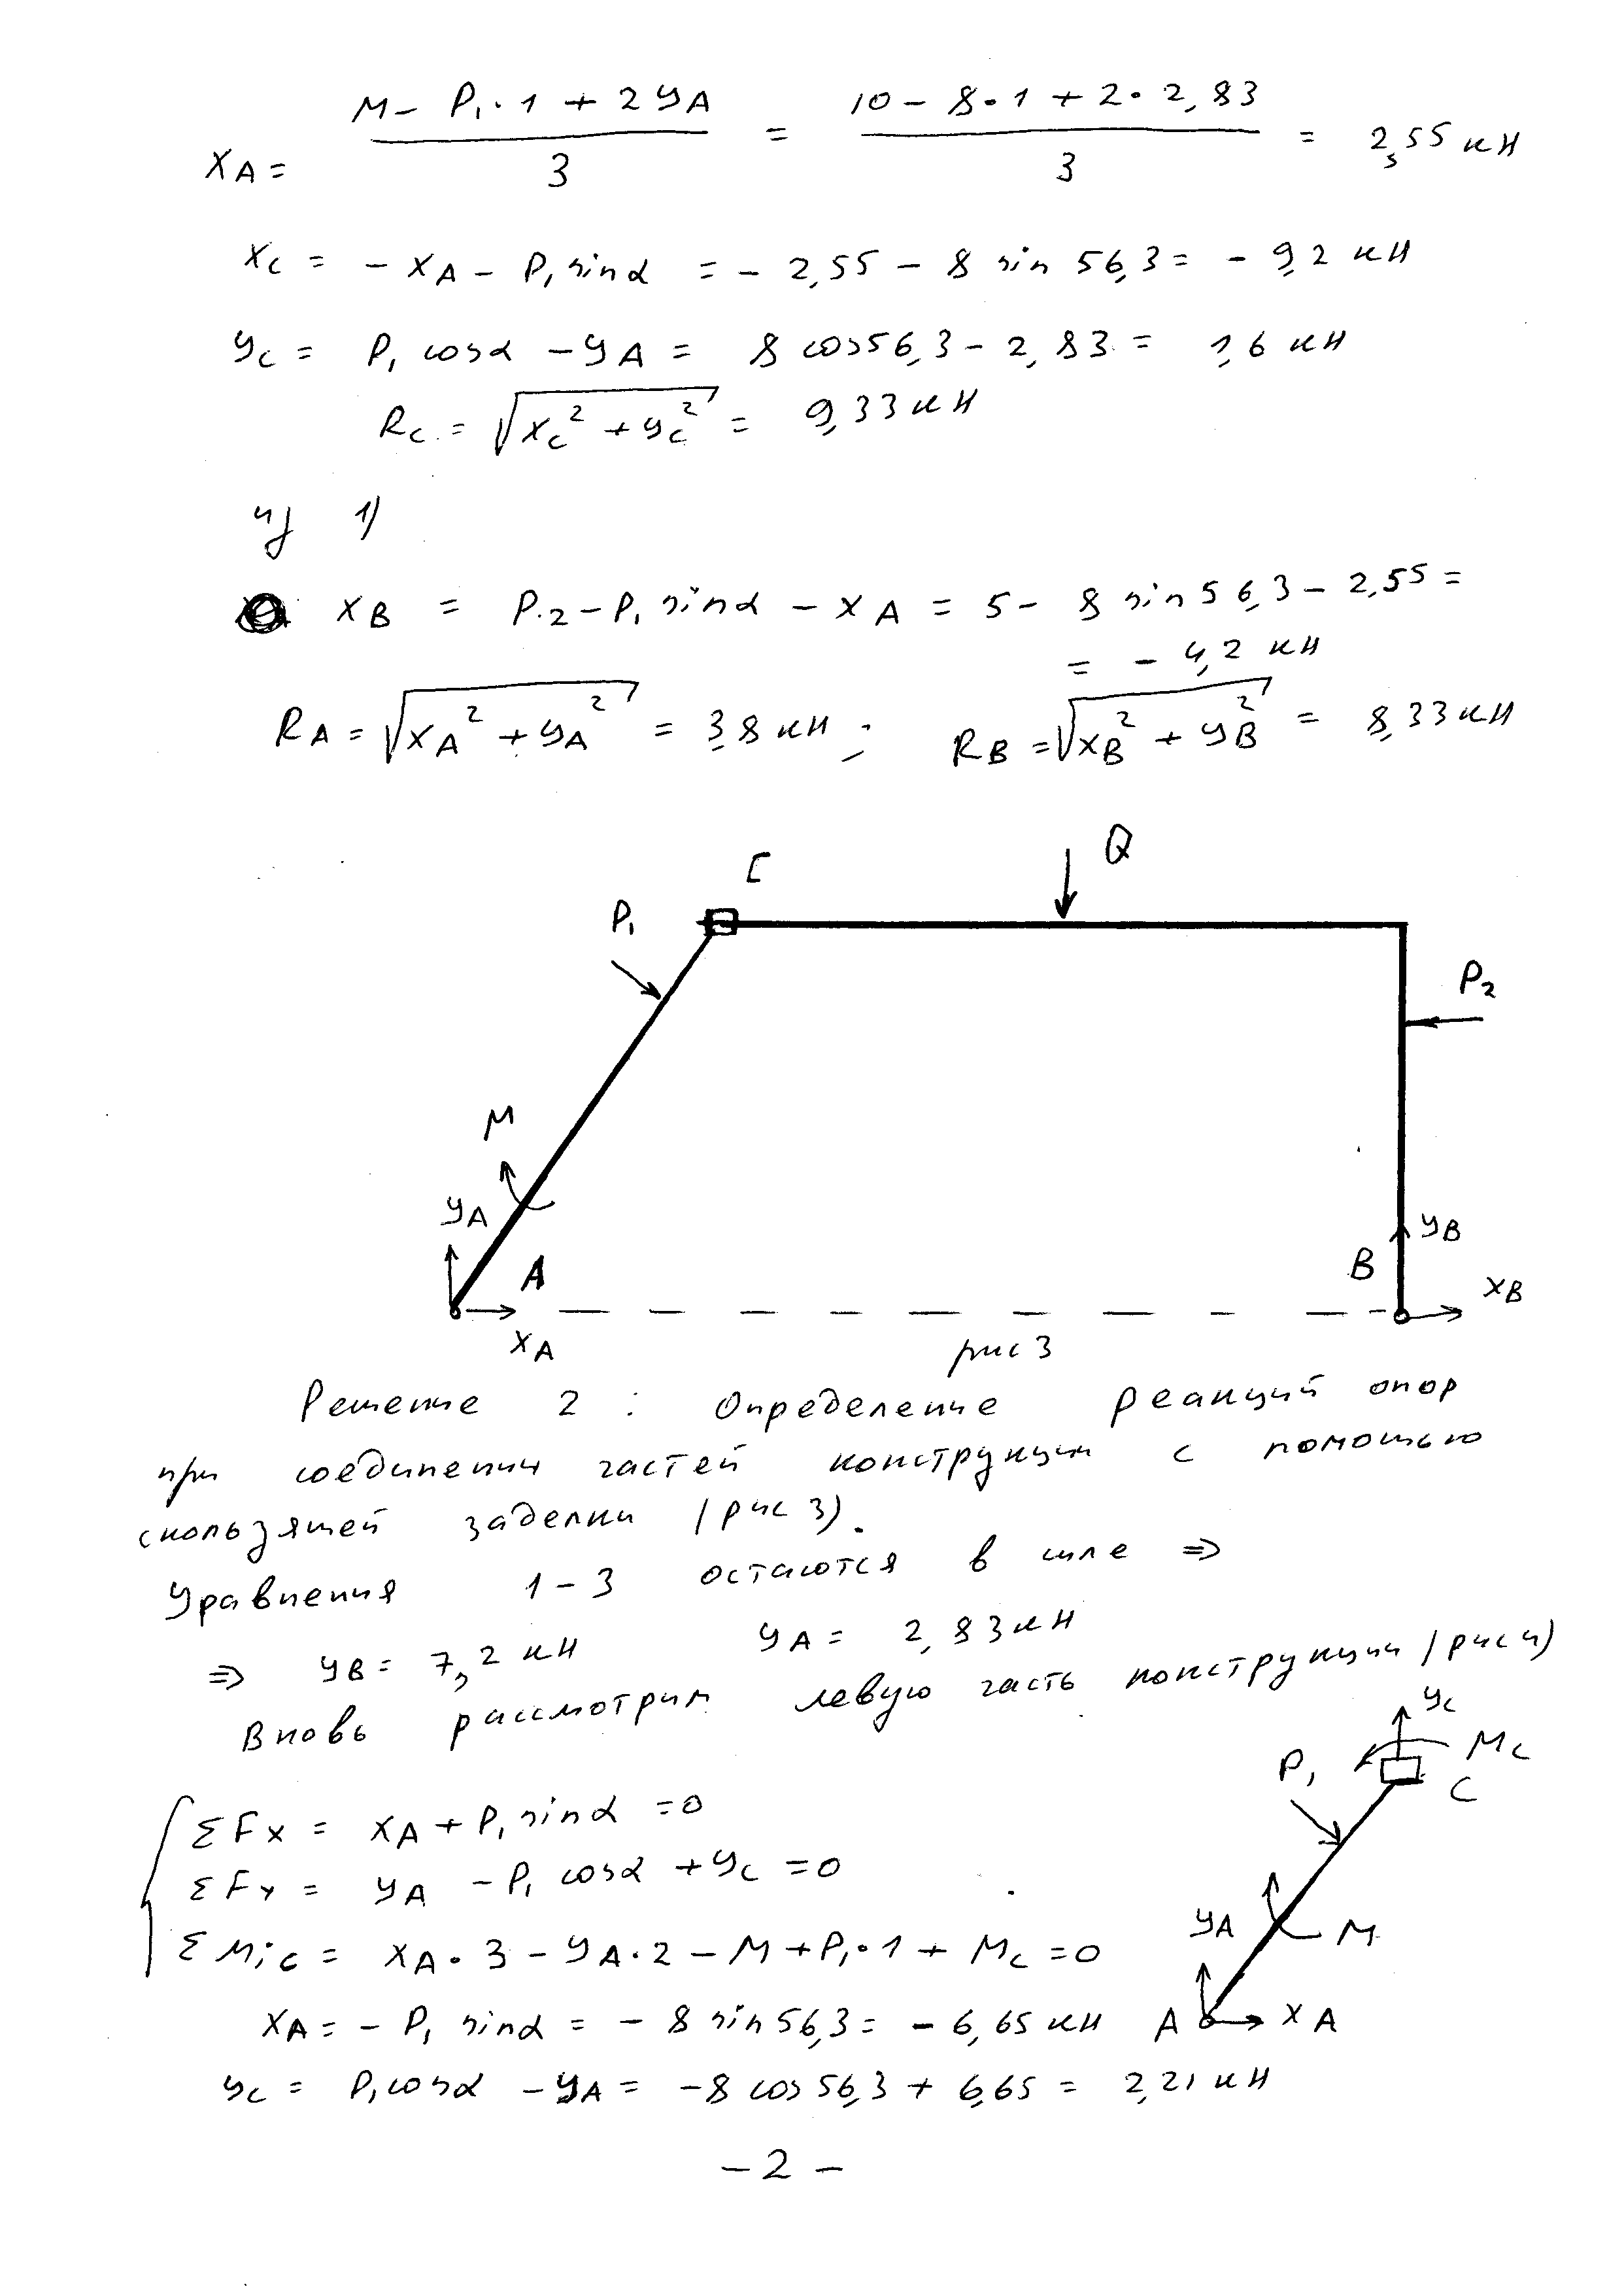 XA = (M - P₁·1 + 2YA)/3 = (10 - 8·1 + 2·2,83)/3 = 2,55 кН
XC = - XA - P₁ sinα = - 2,55 - 8 sin 56,3 = - 9,2 кН
YC = P₁ cosα - YA = 8 cos56,3 - 2,83 = 1,6 кН
RC = √(XC² + YC²) = 9,33 кН
из 1)
XB = P₂ - P₁ sinα - XA = 5 - 8 sin56,3 - 2,55 =
= - 4,2 кН
RA = √(XA² + YA²) = 3,8 кН ; RB = √(XB² + YB²) = 8,33 кН
Q
C
P₁
P₂
M
YA
YB
A
B
XB
XA
рис 3
Решение 2 : Определение реакций опор
при соединении частей конструкции с помощью
скользящей заделки (рис 3).
Уравнения 1-3 остаются в силе ⇒
⇒ YB = 7,2 кН YA = 2,83 кН
Вновь рассмотрим левую часть конструкции (рис 4)
YC
MC
P₁
C
ΣFx = XA + P₁ sinα = 0
ΣFy = YA - P₁ cosα + YC = 0
YA
M
ΣMiC = XA·3 - YA·2 - M + P₁·1 + MC = 0
XA = - P₁ sinα = - 8 sin56,3 = - 6,65 кН
A
XA
YC = P₁cosα - YA = -8 cos 56,3 + 6,65 = 2,21 кН
- 2 -